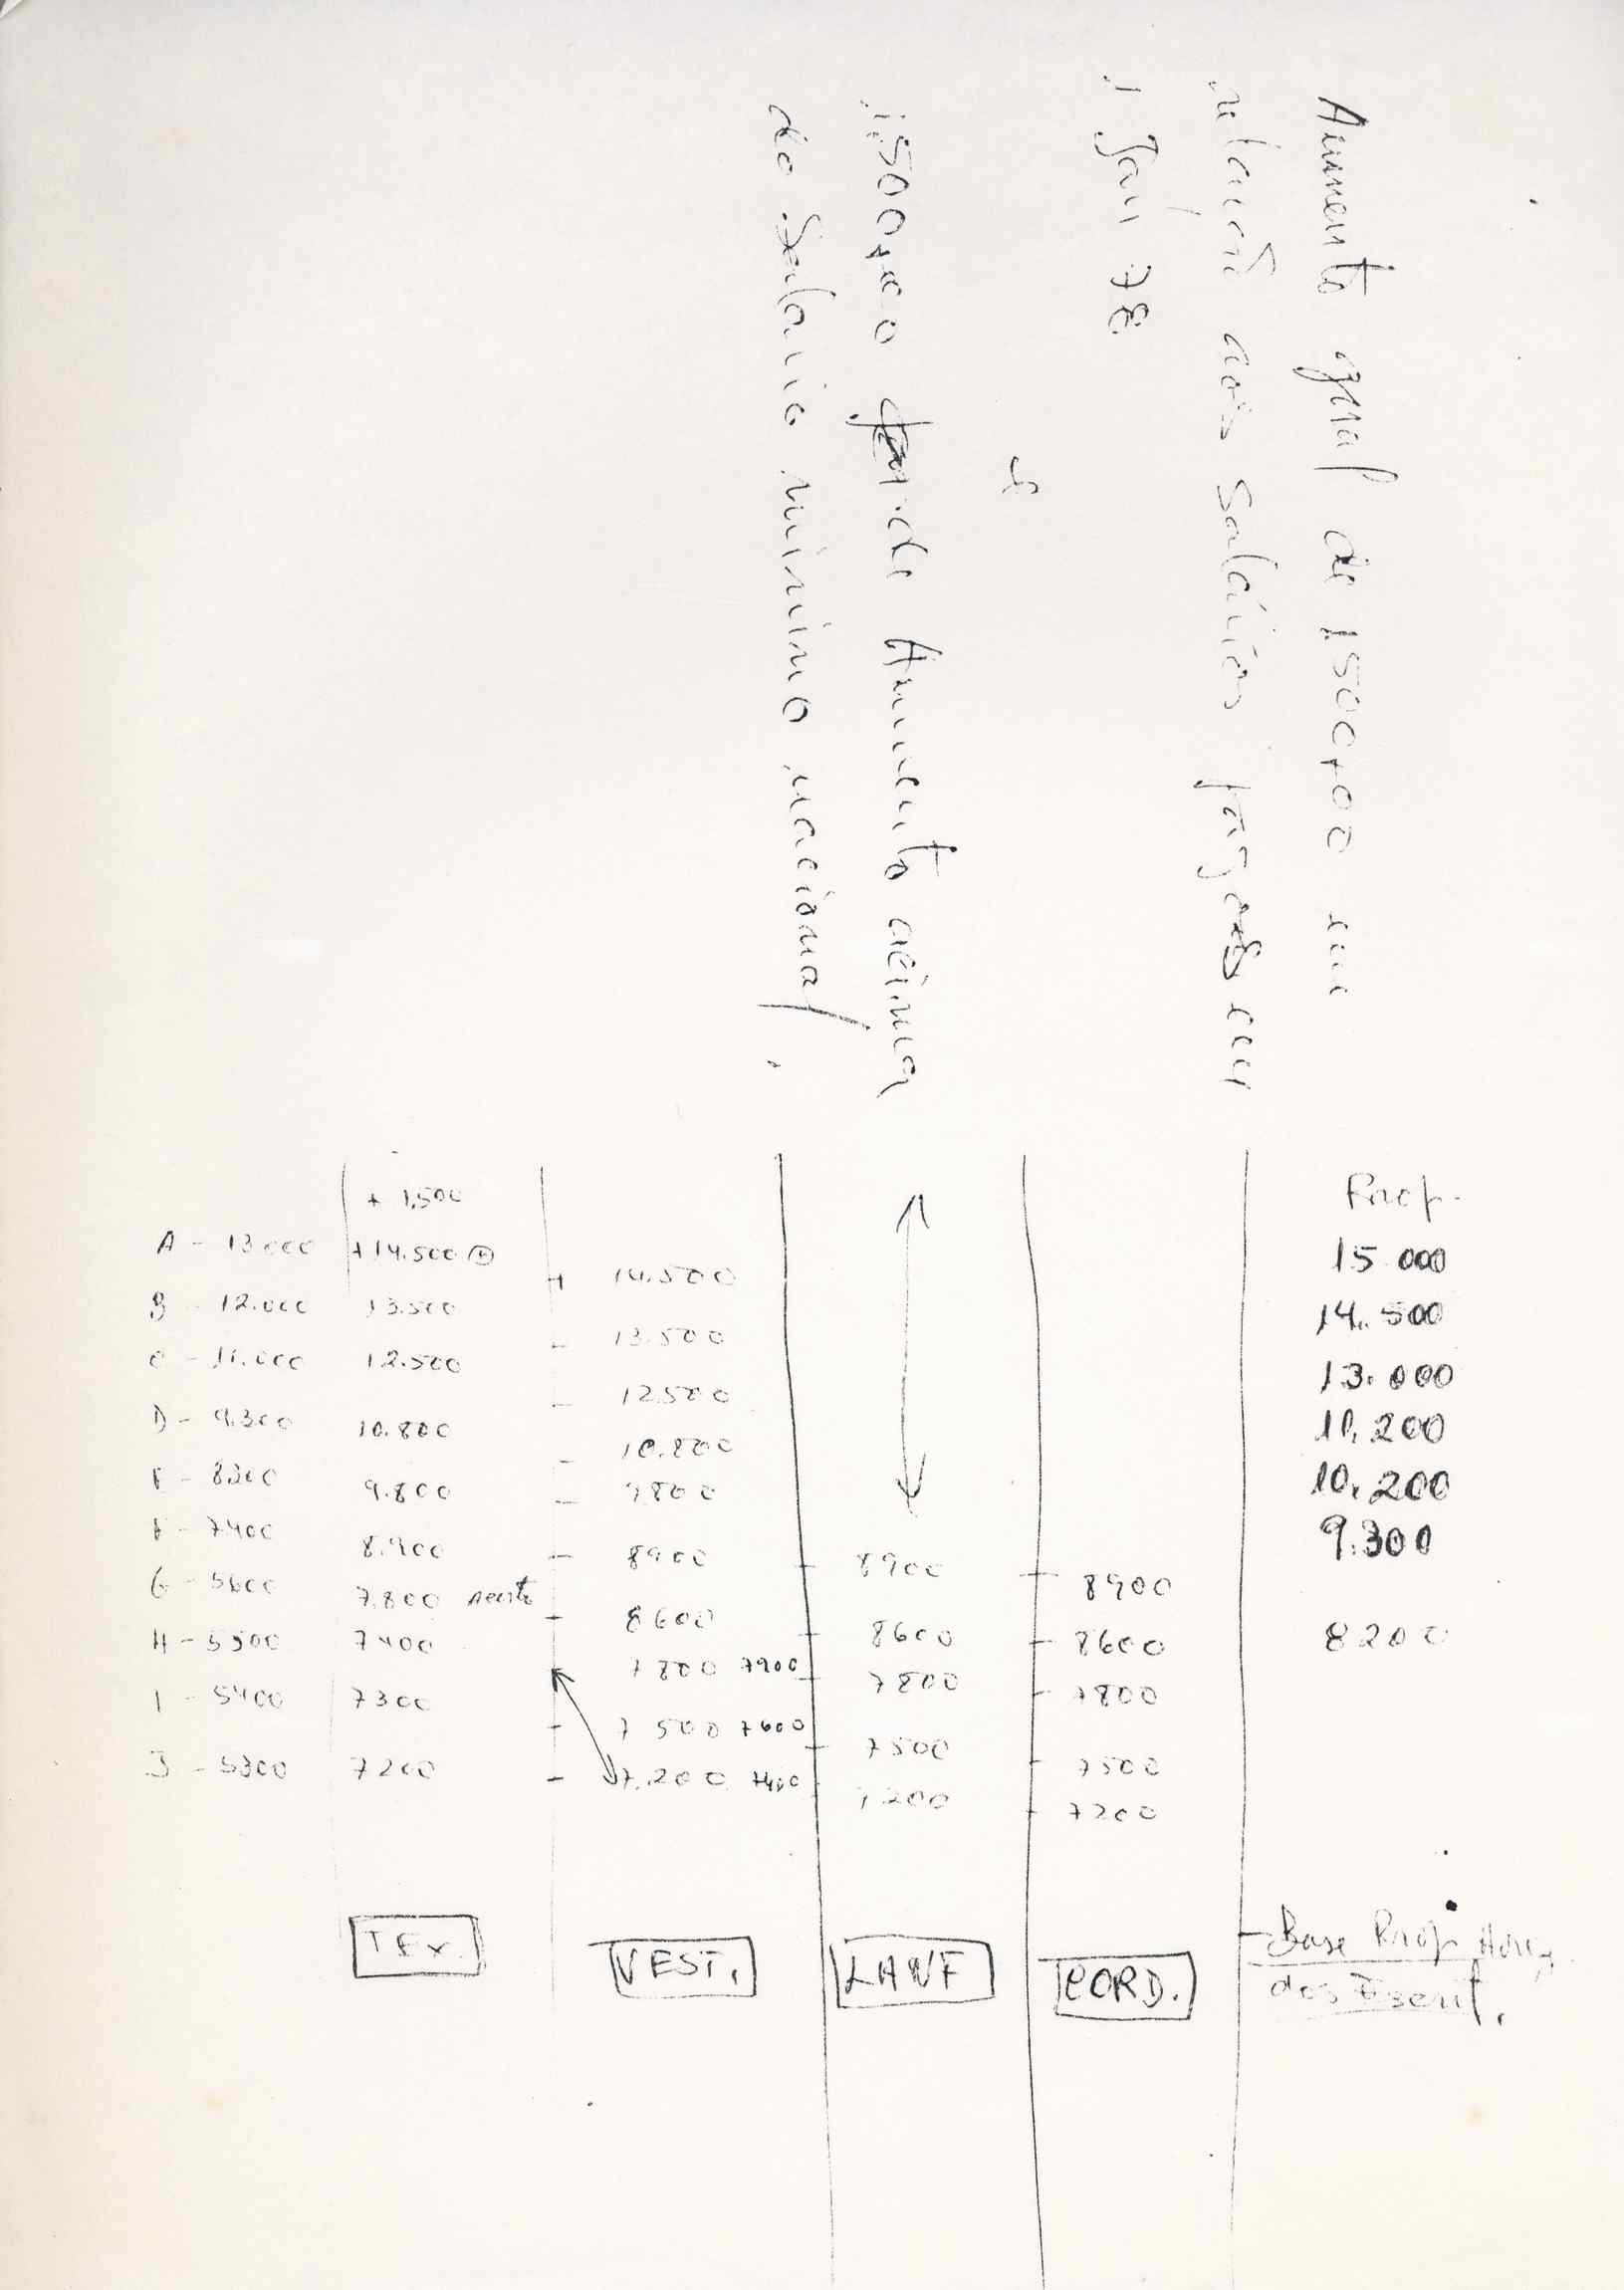 Aumento igual de 1500,00 em
relação aos salários pagos em
1 Jan 78
1.500,00 de Aumento acima
do Salario minimo nacional.
+ 1.500
A - 13.000 +14.500 ⊕ 14.500 15.000
B - 12.000 13.500 13.500 14.500
C - 11.000 12.500 12.500 13.000
D - 9.300 10.800 10.800 11.200
E - 8300 9.800 9800 10.200
F - 7400 8.900 8900 8900 8900 9.300
G - 5600 7.800 8600 8600 8600 8200
H - 5500 7400 7800 7900 7800 7800
I - 5400 7300 7500 7600 7500 7500
J - 5300 7200 7.200 7400 7200 7200
TEX. VEST. LANF CORD. Base Prop
dos Escrit.